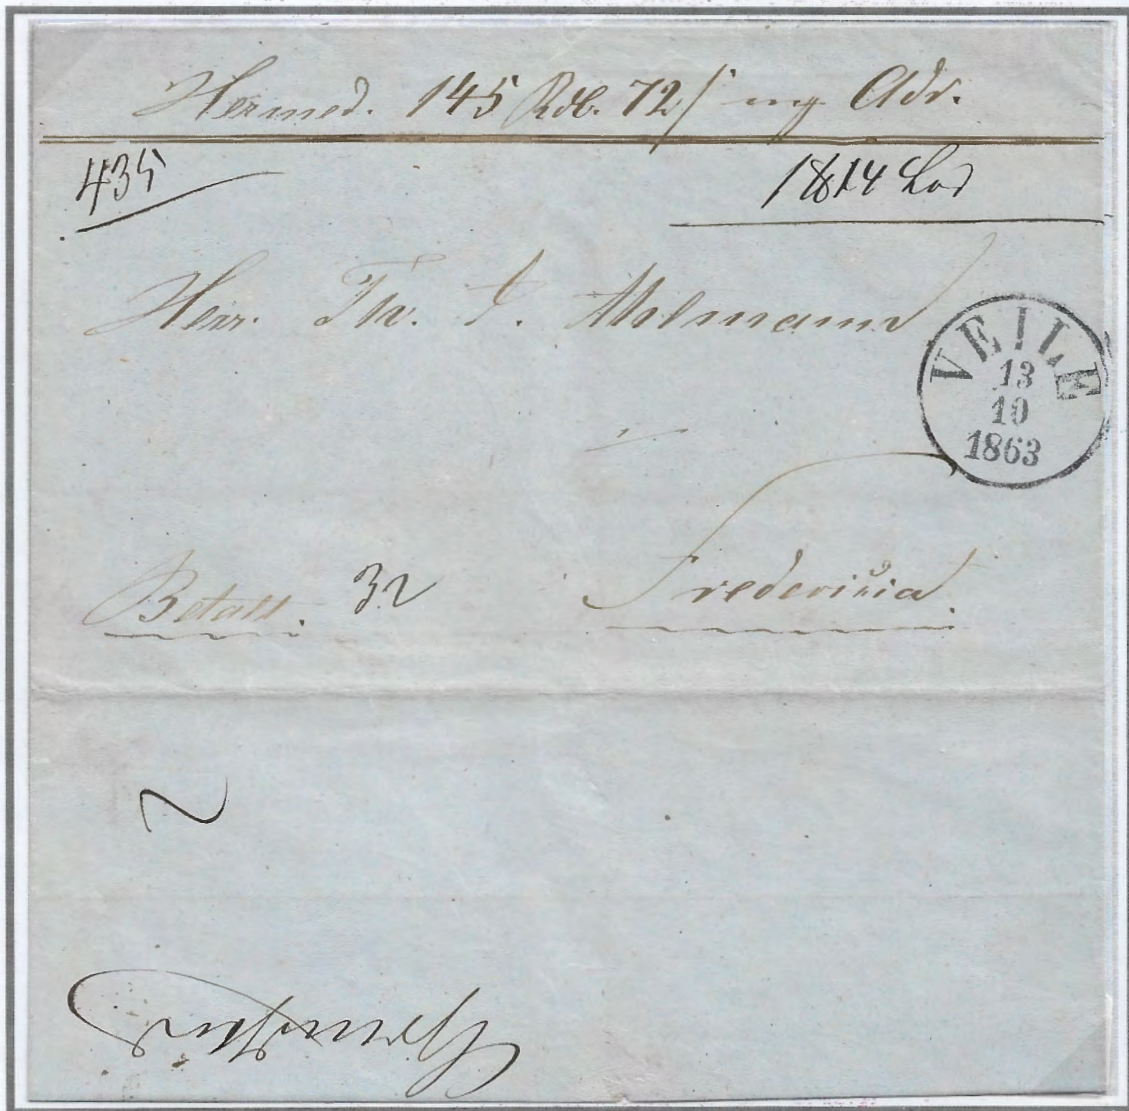 Hermed. 145 Rdl. 72/ mrk Adr.
435
Lod
Herr. Th. A. Ahlmann
VEILE
13
10
1863
Betalt. 32
Fredericia.
2